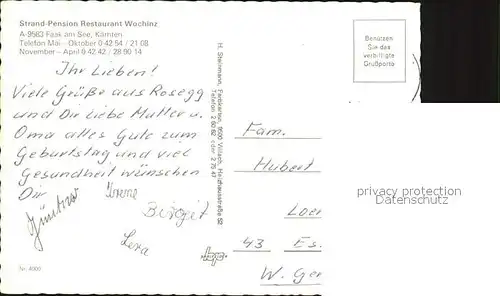 Strand-Pension Restaurant Wochinz
A-9583 Faak am See, Kärnten
Telefon Mai - Oktober 0 42 54 / 21 08
November - April 0 42 42 / 28 90 14
Ihr Lieben!
Viele Grüße aus Rosegg
und Dir liebe Mutter u.
Oma alles Gute zum
Geburtstag und viel
Gesundheit wünschen
Dir
Irene
Birgit
Günther
Lexa
Nr. 4000
H. Steinmann, Farbkarten, 9500 Villach, Heidfeldstraße 52
Telefon 2 60 82 oder 2 75 47
Benützen
Sie das
verbilligte
Grußporto
Fam.
Hubert
Loe
43 Es.
W. Ger
bp
privacy protection
Datenschutz